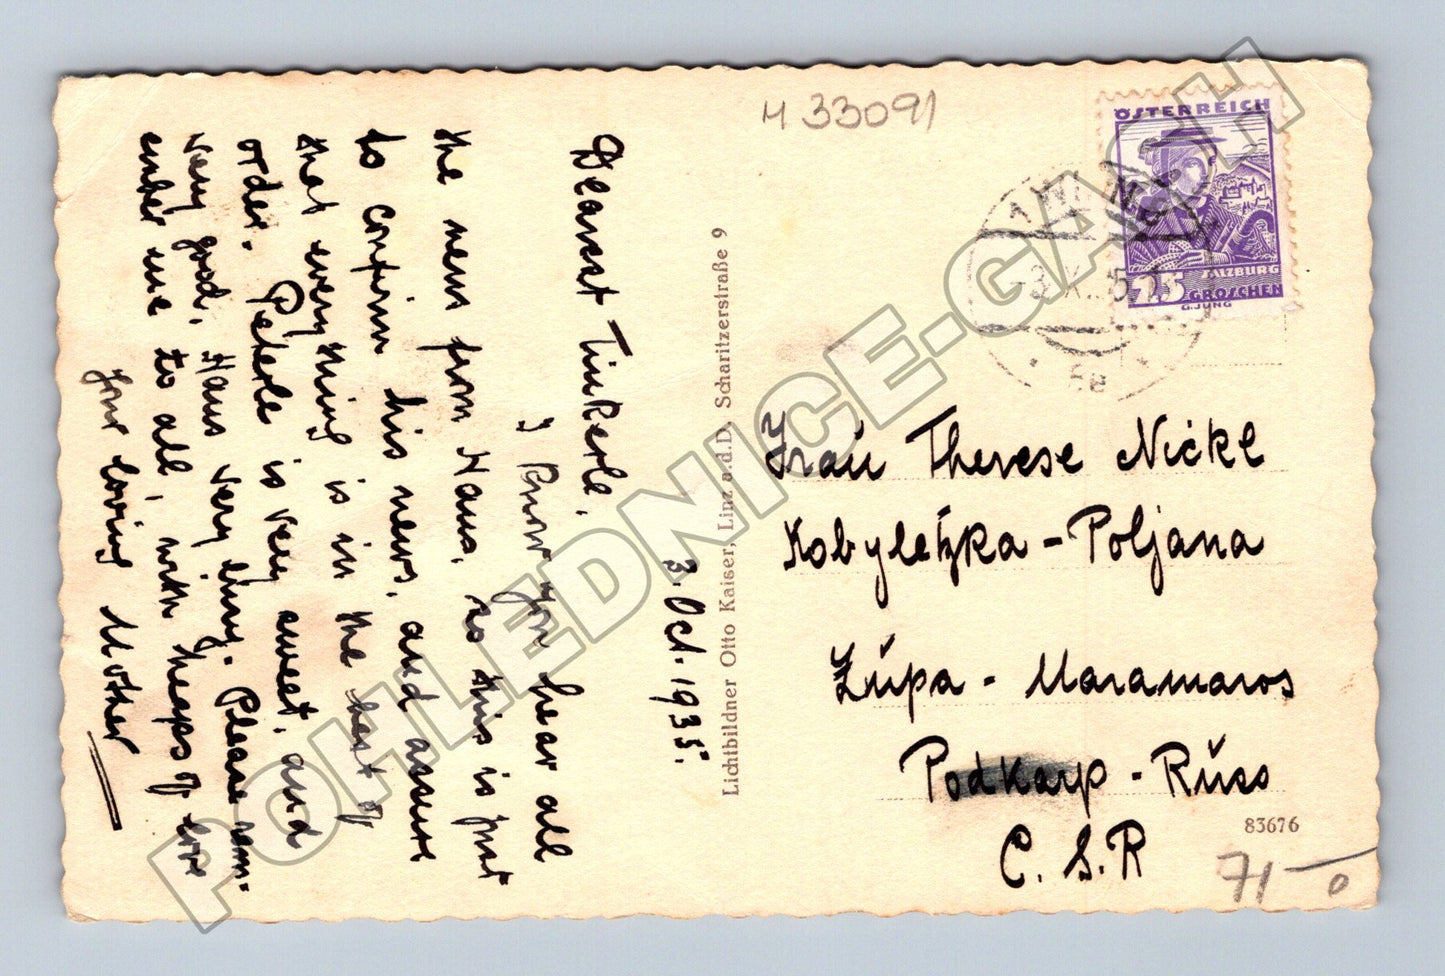 M 33091
ÖSTERREICH
SALZBURG
25 GROSCHEN
G. JUNG
3. Oct. 1935.
Dearest Tinkerle,
I know you hear all
the news from Hans, so this is just
to confirm his news, and assure
that everything is in the best of
order. Peterle is very sweet, and
very good. Hans very busy. Please rem-
ember me to all, with heaps of love
Your loving Mother
Lichtbildner Otto Kaiser, Linz a.d.D. Scharitzerstraße 9
Frau Therese Nickl
Kobyletzka - Poljana
Župa - Maramaros
Podkarp - Rúss
C. S. R
83676
71-0
POHLEDNICE-GASCH